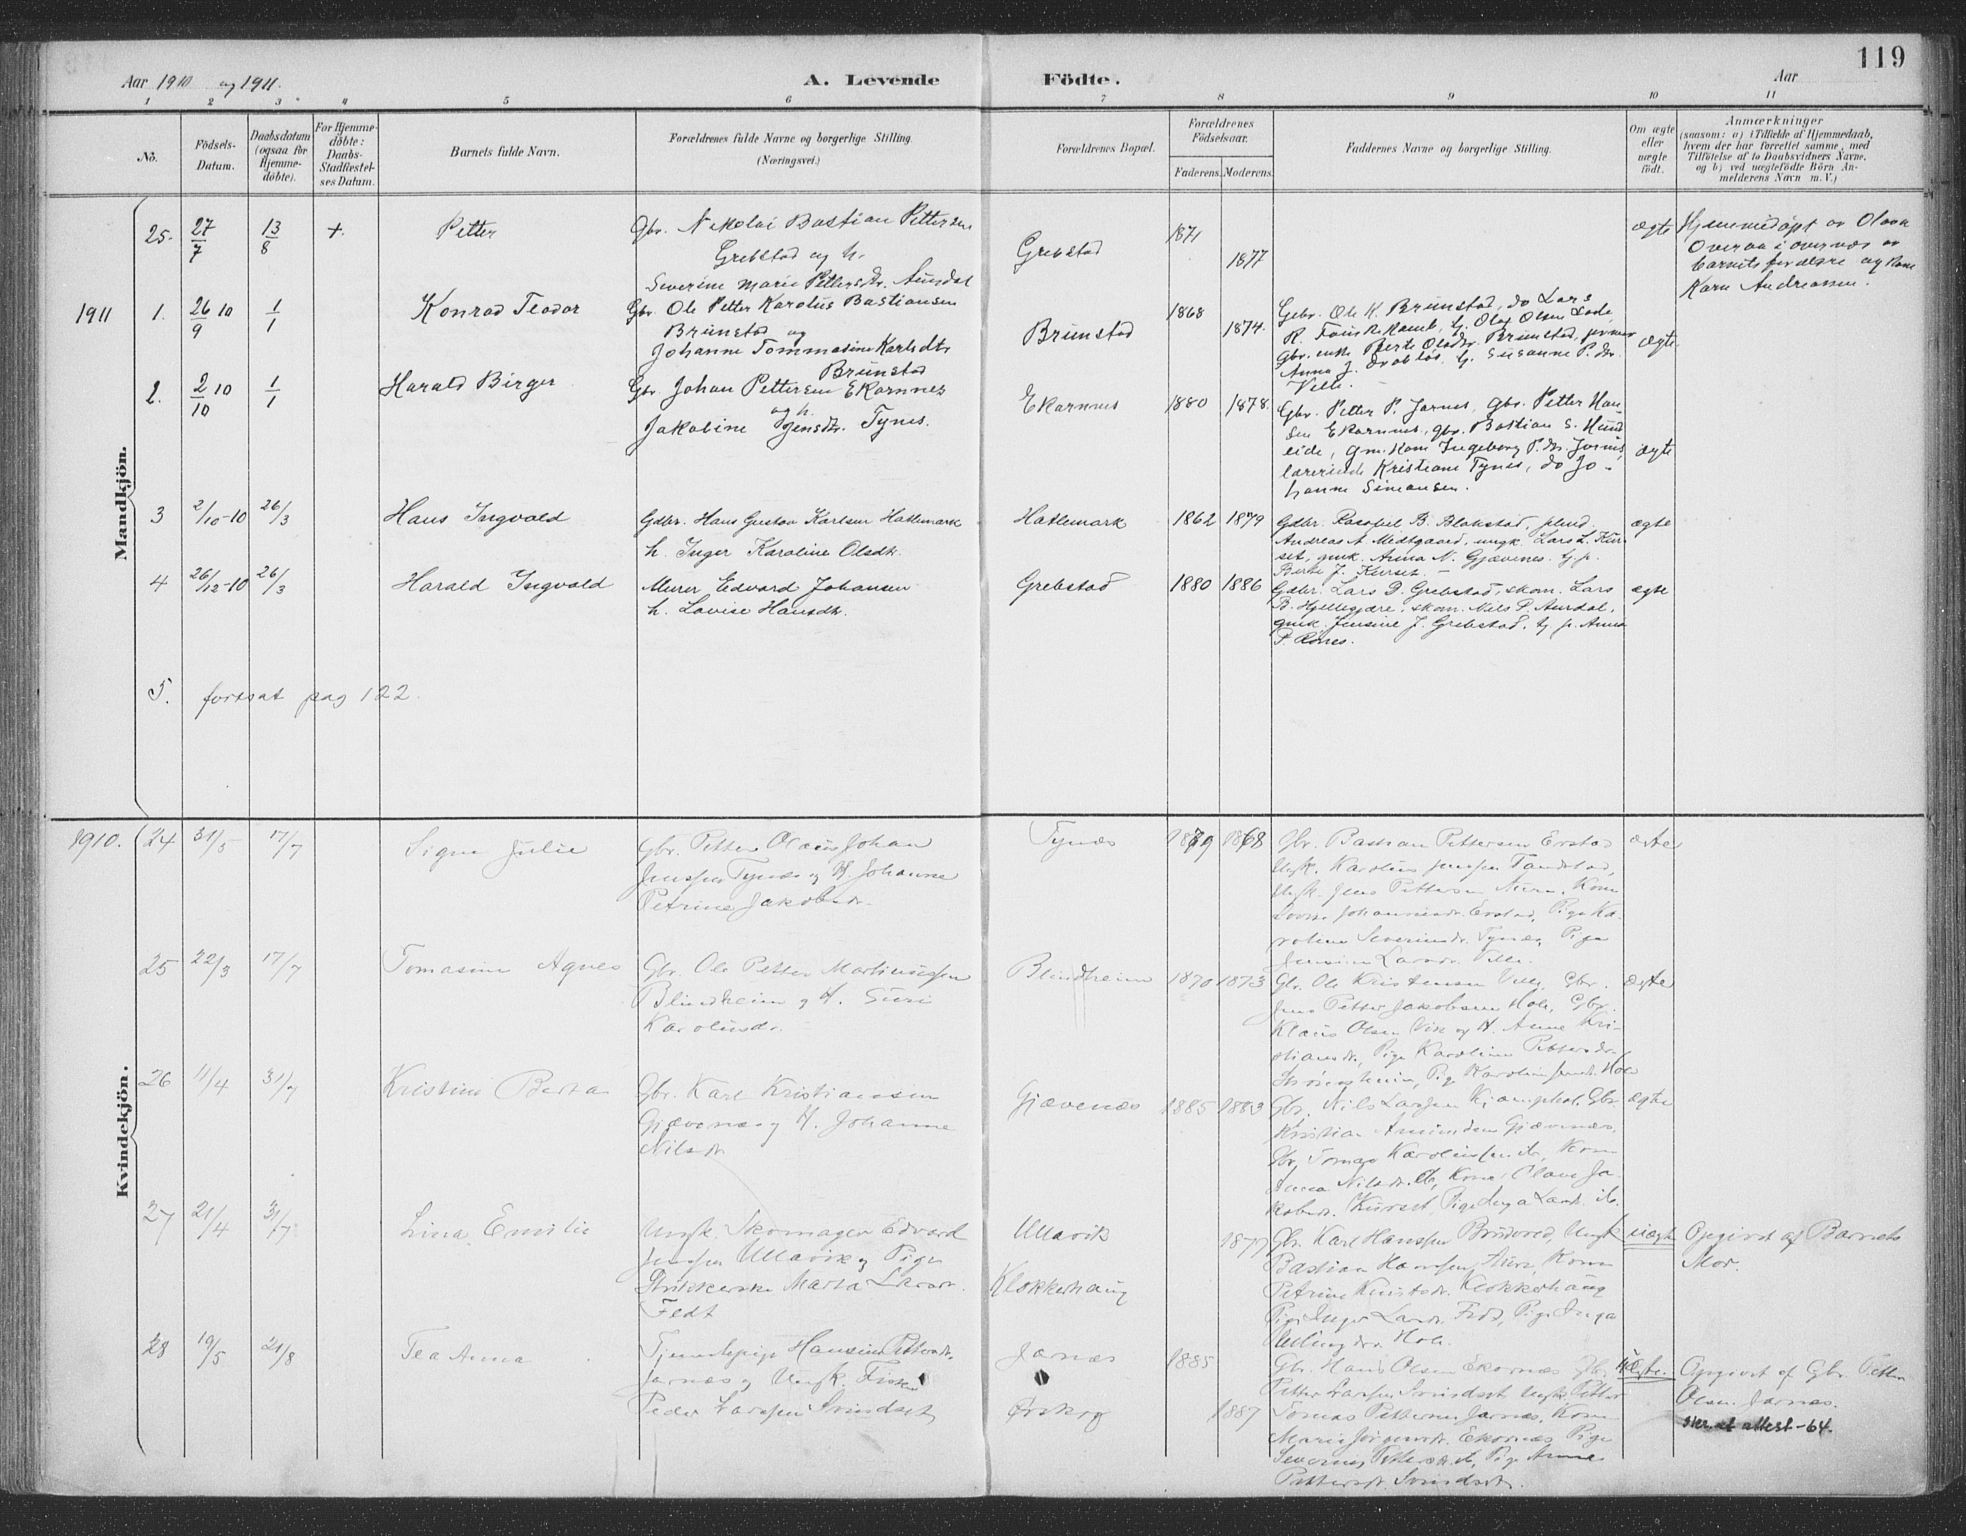 119
Aar 1910 og 1911. A. Levende Födte. Aar
1 2 3 4 5 6 7 8 9 10 11
No.
Födsels-
Datum.
Daabsdatum
(ogsaa for
Hjemme-
döbte).
For Hjemme-
döbte:
Daabs-
Stadfæstel-
ses Datum.
Barnets fulde Navn.
Forældrenes fulde Navne og borgerlige Stilling.
(Næringsvei.)
Forældrenes Bopæl.
Forældrenes
Födselsaar.
Faderens. Moderens.
Faddernes Navne og borgerlige Stilling.
Om ægte
eller
uægte
födt.
Anmærkninger
(saasom: a) i Tilfælde af Hjemmedaab,
hvem der har forrettet samme, med
Tilföielse af to Daabsvidners Navne,
og b) ved uægtefödte Börn An-
melderens Navn m. V.)
Mandkjön.
25. 27/7 13/8 + Petter
Gbr. Nikolai Bastian Pettersen
Grebstad og h.
Severine Marie Pettersdtr. Aursdal
Grebstad 1871 1877 ægte
Hjemmedöpt av Olava
Overaa i overnær av
barnets forældre og Kone
Karn Andreassen.
1911 1. 26/9 10 1/1 Konrad Teodor
Gbr. Ole Petter Karolus Bastiansen
Brunstad og
Johanne Tommasine Karlsdtr.
Brunstad
Brunstad 1868 1874. ægte
Gbr. Ole K. Brunstad, do Lars
R. Fauskekamb, Olaf Olsen
gbr. enke Berte Olsdtr. Brunstad,
Anna J. Drabløs, Susanne P. dtr.
Velle.
2. 2/10 10 1/1 Harald Birger
Gbr. Johan Pettersen Ekornnes
og h.
Jakobine Jensdtr. Tynes.
Ekornnes 1880 1878. ægte
Gbr. Petter P. Jarnes, Gbr. Petter Han-
sen Ekornnes, gbr. Bastian S. Hund
eide, gm. Kone Ingeborg P. dtr. Jarnes,
lærerinde Kristiane Tynes, do Jo-
hanne Simonsen.
3 2/10-10 26/3 Hans Ingvald
Gdbr. Hans Gustav Karlsen Hatlemark
h. Inger Karoline Olsdtr.
Hatlemark 1862 1879 ægte
Gdbr. Rasmus B. Blakstad,
Andreas A. Medtgaard, ungk. Lars L. Kur-
set, gmk. Anna N. Gjævenes. tj. p.
Berte J. Kurset.
4 26/12-10 26/3 Harald Ingvald
Murer Edvard Johansen
h. Lovise Hansdtr.
Grebstad 1880 1886 ægte
Gdbr. Lars D. Grebstad, skom. Lars
B. Hjellegjære, skom. Nils P. Aursdal,
gmk. Jensine J. Grebstad, tj. p. Anna
P. Rønes.
5. fortsat pag 122.
Kvindekjön.
1910. 24 31/5 17/7 Signe Julie
Gbr. Petter Olaus Johan
Jenssen Tynes og H. Johanne
Petrine Jakobsdr.
Tynes 1868 ægte
Gbr. Bastian Pettersen Erstad
Ungk. Karolus Jenssen Tandstad,
Ungk. Jens Pettersen Aure, Kone
Lovise Johannesdr. Erstad, Pige Ka-
roline Severinsdr. Tynes, Pige
Jensine Larsdr. Velle.
25 22/3 17/7 Tomasine Agnes
Gbr. Ole Petter Martinussen
Blindheim og H. Guri
Karolusdr.
Blindheim 1870 1873 ægte
Gbr. Ole Kristensen Velle, Gbr.
Jens Petter Jakobsen Hole, Gbr.
Klaus Olsen Vik og H. Anne Kri-
stiansdr., Pige Karoline Pettersdr.
Strømsheim, Pige Karoline Jensdr. Hole
26 11/4 31/7 Kristine Berta
Gbr. Karl Kristiansen
Gjævenes og H. Johanne
Nilsdr.
Gjævenes 1885 1883 ægte
Gbr. Nils Larssen Kjæmphol, Gbr.
Kristian Amundsen Gjævenes,
Gbr. Tomas Karolussen ib., Kone
Anna Nilsdr. ib., Kone Olave Ja-
kobsdr. Kurset, Pige Inga Larsdr. ib.
27 21/4 31/7 Lina Emilie
Ungk. Skomager Edvard
Jenssen Ullavik og Pige
Strikkerske Marta Larsdr.
Fedt
Ullavik
Klokkerhaug
1877 uægte
Gbr. Karl Hanssen Brudevod, Ungk
Bastian Hanssen Aure, Kone
Petrine Knutsdr. Klokkerhaug
Pige Inger Larsdr. Fedt, Pige Inga
Hole.
Opgivet af Barnets
Mor.
28 19/5 21/8 Tea Anna
Tjenestepige Hansine Pettersdr.
Jarnes og Ungk. Fisker
Peder Larssen Svindset
Jarnes
Ørskog
1885 1887 Uægte.
Gbr. Hans Olsen Ekornes, Gbr.
Petter Larssen Svindset, Ungk. Petter
Tomas Pettersen Jarnes, Kone
Marie Jørgensdr. Ekornes, Pige
Severine Pettersdr. ib., Pige Anne
Pettersdr. Svindset.
Opgivet af Gbr. Petter
Olsen Jarnes.
skr. ut attest -64.